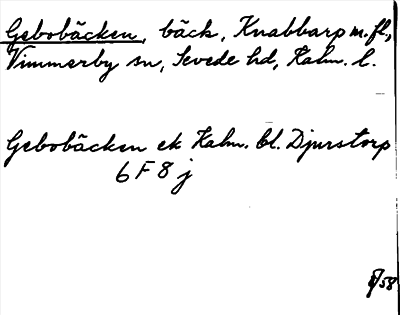 Gebobäcken, bäck, Knabbarp m. fl.,
Vimmerby sn, Sevede hd, Kalm. l.
Gebobäcken ek Kalm. bl. Djurstorp
6 F 8 j